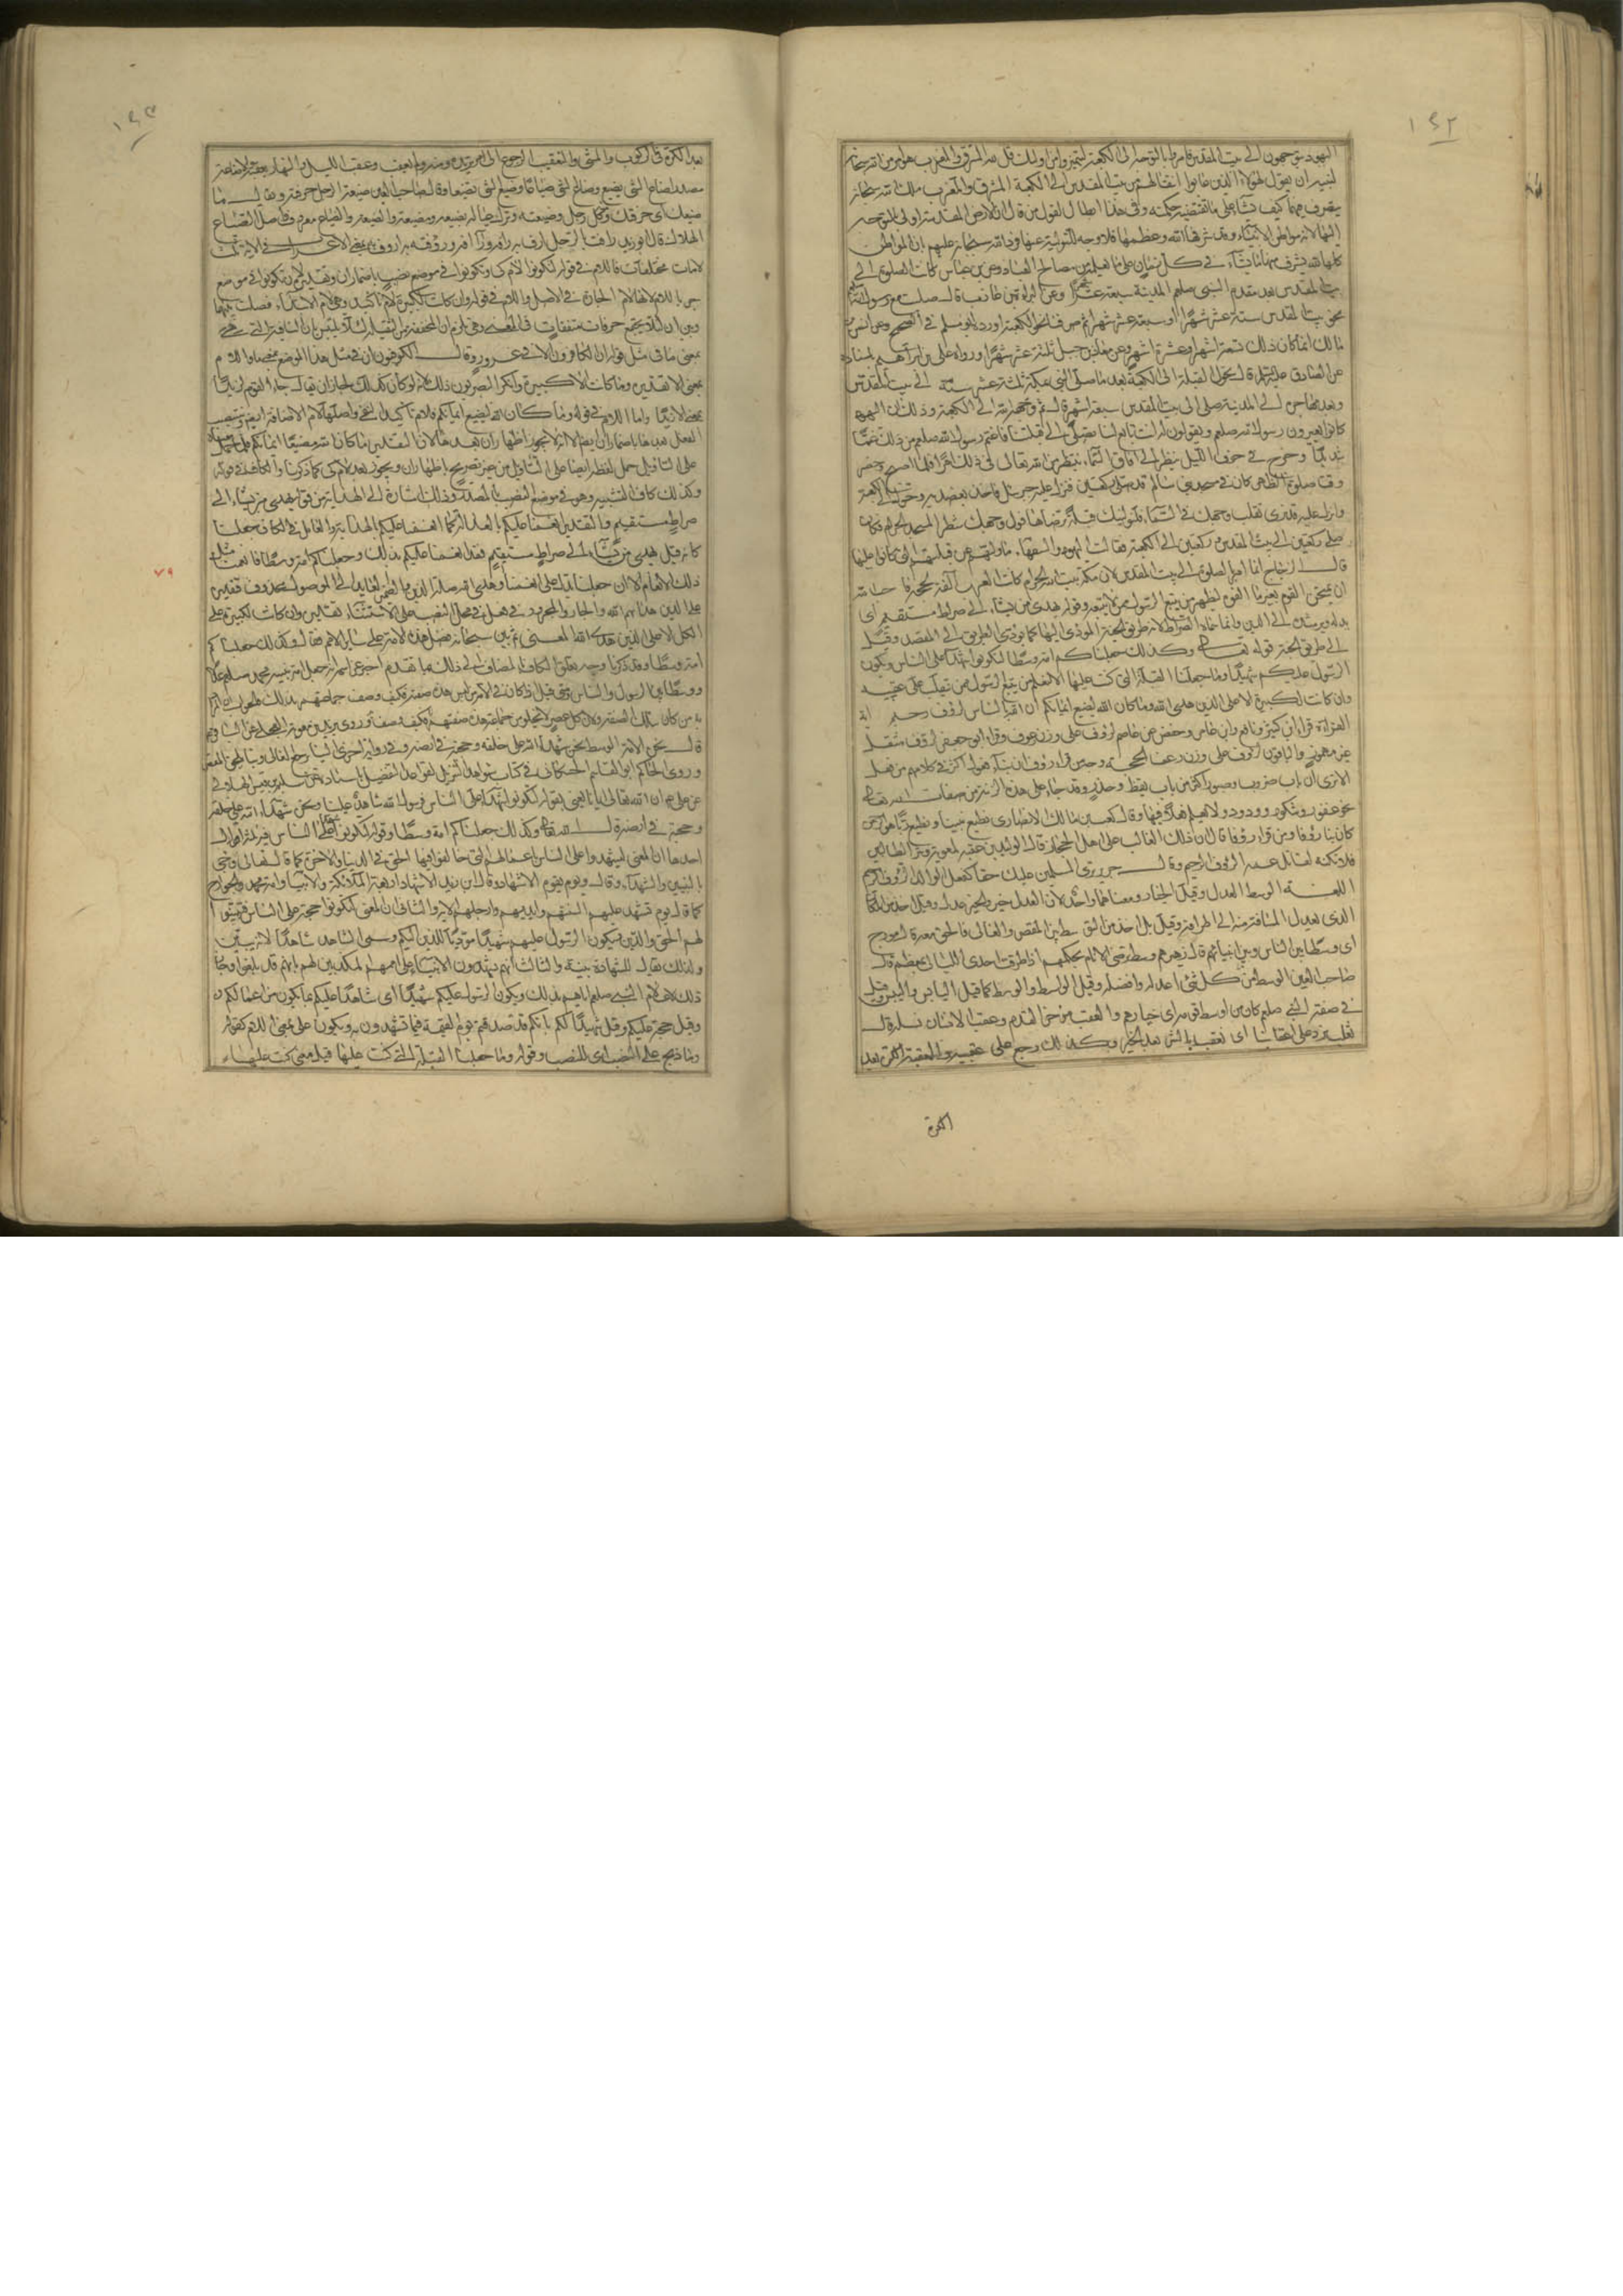 ١٤٢
اليهود يتوجهون الى بيت المقدس فامرهم الله بالتوجه الى الكعبة ليتميزوا من اولئك قل لله المشرق والمغرب هو امر من الله سبحانه
لنبيه ان يقول لهؤلاء الذين عابوا انتقالهم من بيت المقدس الى الكعبة المشرق والمغرب ملك لله سبحانه
يتصرف فيهما كيف شاء على ما تقتضيه حكمته وفى هذا ابطال لقول من قال ان الارض المقدسة اولى بالتوجه
اليها لانها مواطن الانبياء وقد شرفها الله وعظمها فلا وجه للتولية عنها فرد الله سبحانه عليهم ان المواطن
كلها لله يشرف منها ما يشاء فى كل زمان على ما يعلم من مصالح العباد وعن ابن عباس كانت الصلوة الى
بيت المقدس بعد مقدم النبى صلعم المدينة سبعة عشر شهرا وعن البراء بن عازب قال صليت مع رسول الله
نحو بيت المقدس ستة عشر شهرا او سبعة عشر شهرا ثم صرفنا نحو الكعبة اورده مسلم فى الصحيح وعن انس بن
مالك انما كان ذلك تسعة اشهر او عشرة اشهر وعن معاذ بن جبل ثلثة عشر شهرا ورواه على بن ابراهيم باسناده
عن الصادق عليه السلم قال تحول القبلة الى الكعبة بعد ما صلى النبى بمكة ثلثة عشر سنة الى بيت المقدس
وبعد مهاجرته الى المدينة صلى الى بيت المقدس سبعة اشهر قال ثم وجهه الله الى الكعبة وذلك ان اليهود
كانوا يعيرون رسول الله صلعم ويقولون له انت تابع لنا تصلى الى قبلتنا فاغتم رسول الله صلعم من ذلك غما
شديدا وخرج فى جوف الليل ينظر الى افاق السماء ينتظر من الله تعالى فى ذلك امرا فلما اصبح وحضر
وقت صلوة الظهر كان فى مسجد بنى سالم قد صلى ركعتين فنزل عليه جبرئيل فاخذ بعضديه وحوله الى الكعبة
وانزل عليه قد نرى تقلب وجهك فى السماء فلنولينك قبلة ترضاها فول وجهك شطر المسجد الحرام فكان
صلى ركعتين الى بيت المقدس وركعتين الى الكعبة فقالت اليهود والسفهاء ما وليهم عن قبلتهم التى كانوا عليها
قال الزجاج انما امر بالصلوة الى بيت المقدس لان مكة بيت الله الحرام كانت العرب آلفة بحجه فاحب الله
ان يمتحن القوم بغير ما الفوه ليظهر من يتبع الرسول ممن لا يتبعه وقوله يهدى من يشاء الى صراط مستقيم اى
يدله ويرشده الى الدين وانما سماه الصراط لانه طريق الجنة المؤدى اليها كما يؤدى الطريق الى المقصد وقيل
الى طريق الجنة قوله تعالى وكذلك جعلناكم امة وسطا لتكونوا شهداء على الناس ويكون
الرسول عليكم شهيدا وما جعلنا القبلة التى كنت عليها الا لنعلم من يتبع الرسول ممن ينقلب على عقبيه
وان كانت لكبيرة الا على الذين هدى الله وما كان الله ليضيع ايمانكم ان الله بالناس لرؤف رحيم اية
القراءة قرا ابن كثير ونافع وابن عامر وحفص عن عاصم لرؤف على وزن رعوف وقرا ابو جعفر لرؤف مثقل
غير مهموز والباقون لرؤف على وزن رعف الحجة وجه من قرا رؤف ان بناء فعول اكثر فى كلامهم من فعل
الا ترى ان باب ضروب وصبور اكثر من باب يقظ وحذر وقد جاء على هذه الزنة من صفات الله تعالى
نحو غفور وشكور وودود ولا نعلم فعلا فيها وقال كعب بن مالك الانصارى نطيع نبينا ونطيع ربا هو الرحمن
كان بنا رؤفا ومن قرا رؤفا قال ان ذلك الغالب على اهل الحجاز قال الوليد بن عقبة لمعوية وشر الطالبين
فلا تكنه لقاتل عمه الرؤف الرحيم وقال جرير ترى للمسلمين عليك حقا كفعل الوالد الرؤف الرحيم
اللغة الوسط العدل وقيل الخيار ومعناهما واحد لان العدل خير والخير عدل وقيل اخذ من المكان
الذى يعدل المسافة منه الى اطرافه وقيل بل اخذ من التوسط بين المقصر والغالى فالحق معه قال مؤرج
اى وسطا بين الناس وبين انبيائهم قال زهير هم وسط يرضى الانام بحكمهم اذا طرقت احدى الليالى بمعظم قال
صاحب العين الوسط من كل شئ اعدله وافضله وقيل الواسط والوسط كما قيل اليابس واليبس وقيل
فى صفة النبى صلعم كان من اوسط قومه اى خيارهم والعقب مؤخر القدم وعقب الانسان نسله قال
ثعلب نرد على اعقابنا اى نعقب بالشر بعد الخير وكذلك رجع على عقبيه والعقبة الكرة بعد
الكرة
١٤٣
بعد الكرة فى الركوب والمشى والتعقيب الرجوع الى امر تريده ومنه ولم يعقب وعقب الليل النهار يعقبه والاضاعة
مصدر اضاع الشئ يضيع وضاع الشئ ضياعا وضيع الشئ تضييعا وقال صاحب العين ضيعة الرجل حرفته ويقال ما
ضيعتك اى حرفتك وكل رجل وضيعته وترك عياله بضيعة ومضيعة والضيعة والضياع معروف واصل الضياع
الهلاك قال ابو زيد رافت بالرجل اراف به رافة ورؤفت به اروف به بمعنى الاعراب فى الاية ثلث
لامات مختلفات فاللام فى قوله لتكونوا لام كى وتكونوا فى موضع نصب باضمار ان وتقديره لان تكونوا فى موضع
جر باللام لانها لام الجارة فى الاصل واللام فى قوله وان كانت لكبيرة لام تاكيد وهى لام الابتداء فصلت بينها
وبين ان لئلا يجتمع حرفان متفقان فى المعنى وهى تلزم ان المخففة من الثقيلة لئلا يلتبس بان النافية التى هى
بمعنى ما فى مثل قوله ان الكافرون الا فى غرور وقال الكوفيون ان فى مثل هذا الموضع بمعنى ما واللام
بمعنى الا تقديره وما كانت الا كبيرة وانكر البصريون ذلك لانه لو كان كذلك لجاز ان يقال جاء القوم لزيدا
بمعنى الا زيدا واما اللام فى قوله وما كان الله ليضيع ايمانكم فلام تاكيد النفى واصلها لام الاضافة ايضا وينتصب
الفعل بعدها باضمار ان ايضا الا انه لا يجوز اظهار ان بعدها لان التقدير ما كان الله مضيعا ايمانكم فلما حمل معناه
على التاويل حمل لفظه ايضا على التاويل من غير تصريح باظهار ان ويجوز بعد لام كى كما ذكرنا والكاف فى قوله
وكذلك كاف التشبيه وهو فى موضع النصب بالمصدر وذلك اشارة الى الهداية من قوله يهدى من يشاء الى
صراط مستقيم والتقدير انعمنا عليكم بالعدالة كما انعمنا عليكم بالهداية والعامل فى الكاف جعلنا
كانه قيل يهدى من يشاء الى صراط مستقيم فقد انعمنا عليكم بذلك وجعلناكم امة وسطا فانعمنا مثل
ذلك الانعام الا ان جعلنا يدل على انعمنا وهدى الله صلة الذين والضمير العائد الى الموصول محذوف فتقديره
على الذين هداهم الله والجار والمجرور فى محل النصب على الاستثناء تقديره وان كانت لكبيرة على
الكل الا على الذين هدى الله المعنى ثم بين سبحانه فضل هذه الامة على سائر الامم فقال وكذلك جعلناكم
امة وسطا وقد ذكرنا وجه تعلق الكاف المضاف الى ذلك بما تقدم اخبر عز اسمه انه جعل امة نبيه محمد صلعم عدلا
ووسطا بين الرسول والناس ومتى قيل اذا كان فى الامة من ليس هذه صفته فكيف وصف جماعتهم بذلك فالجواب ان المراد
به من كان بتلك الصفة ولان كل عصر لا يخلو من جماعة هذه صفتهم وروى بريد بن معوية العجلى عن الباقر عم
قال نحن الامة الوسط ونحن شهداء الله على خلقه وحجته فى ارضه وفى رواية اخرى الينا يرجع الغالى وبنا يلحق المقصر
وروى الحاكم ابو القاسم الحسكانى فى كتاب شواهد التنزيل لقواعد التفضيل باسناده عن سليم بن قيس الهلالى
عن على عم ان الله تعالى ايانا عنى بقوله لتكونوا شهداء على الناس فرسول الله شاهد علينا ونحن شهداء الله على خلقه
وحجته فى ارضه قال الله تعالى وكذلك جعلناكم امة وسطا وقوله لتكونوا شهداء على الناس فيه ثلثة اقوال
احدها ان المعنى لتشهدوا على الناس باعمالهم التى خالفوا فيها الحق فى الدنيا والاخرة كما قال تعالى وجئ
بالنبيين والشهداء وقال ويوم يقوم الاشهاد وقال ابن زيد الاشهاد اربعة الملائكة والانبياء وامة محمد والجوارح
كما قال يوم تشهد عليهم السنتهم وايديهم وارجلهم الاية والثانى ان المعنى لتكونوا حجة على الناس فتبينوا
لهم الحق والدين ويكون الرسول عليهم شهيدا مؤديا للدين اليكم وسمى الشاهد شاهدا لانه يبين
ولذلك يقال للشهادة بينة والثالث انهم يشهدون للانبياء على اممهم المكذبين لهم بانهم قد بلغوا وجاز
ذلك لاعلام النبى صلعم اياهم بذلك ويكون الرسول عليكم شهيدا اى شاهدا عليكم بما يكون من اعمالكم
وقيل حجة عليكم وقيل شهيدا لكم بانكم قد صدقتم يوم القيمة فيما تشهدون به ويكون على بمعنى اللام كقوله
وما ذبح على النصب اى للنصب وقوله وما جعلنا القبلة التى كنت عليها قيل معنى كنت عليها
٧٩